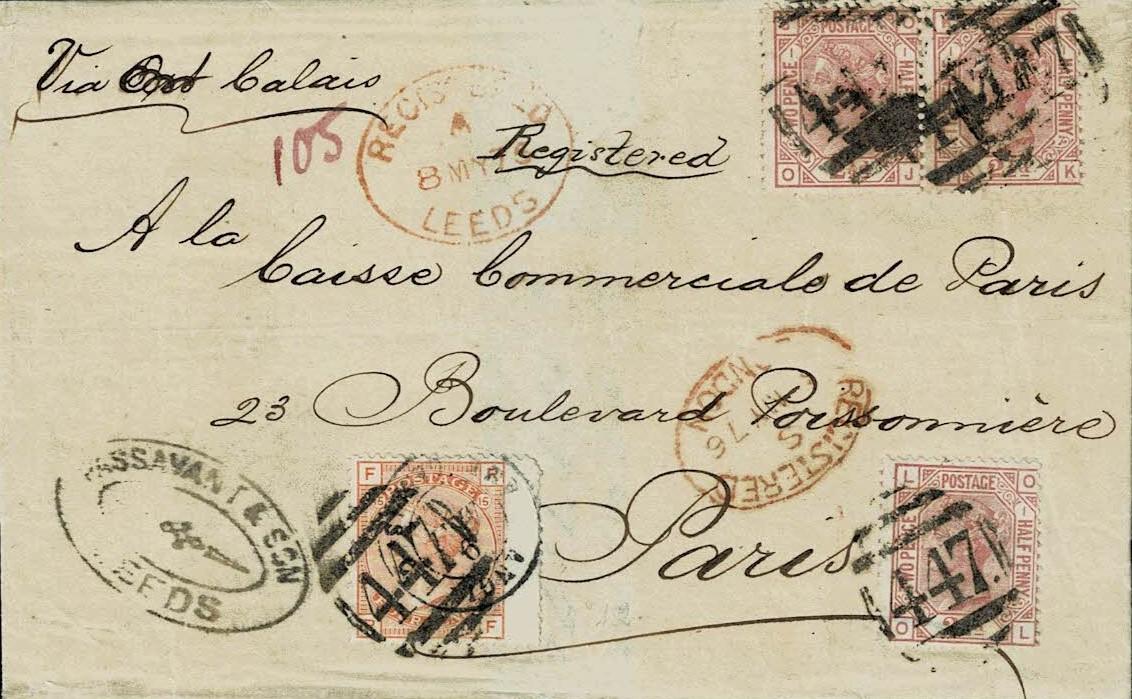 Via Calais
105
REGISTERED
A
8 MY
LEEDS
Registered
POSTAGE
TWO PENCE
HALF PENNY
O J
HALF PENNY
K
447
A la
Caisse Commerciale de Paris
23 Boulevard Poissonnière
Paris
REGISTERED
LONDON
76
PASSAVANT & SON
LEEDS
F
POSTAGE
15
F
447
O
POSTAGE
TWO PENCE
HALF PENNY
O L
447